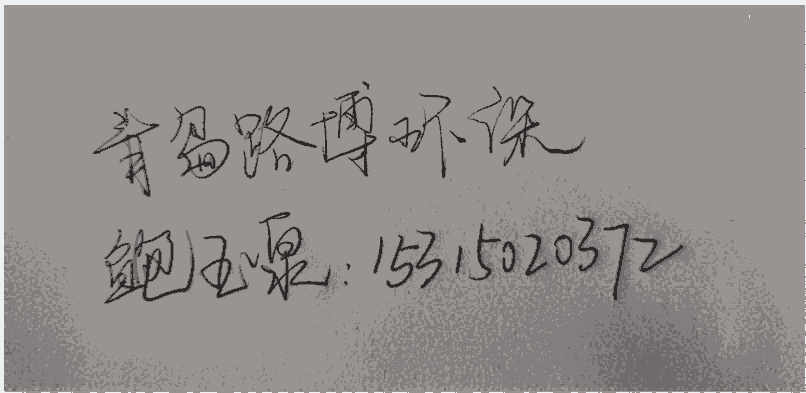 青岛路博环保
鲍玉泉:15315020372